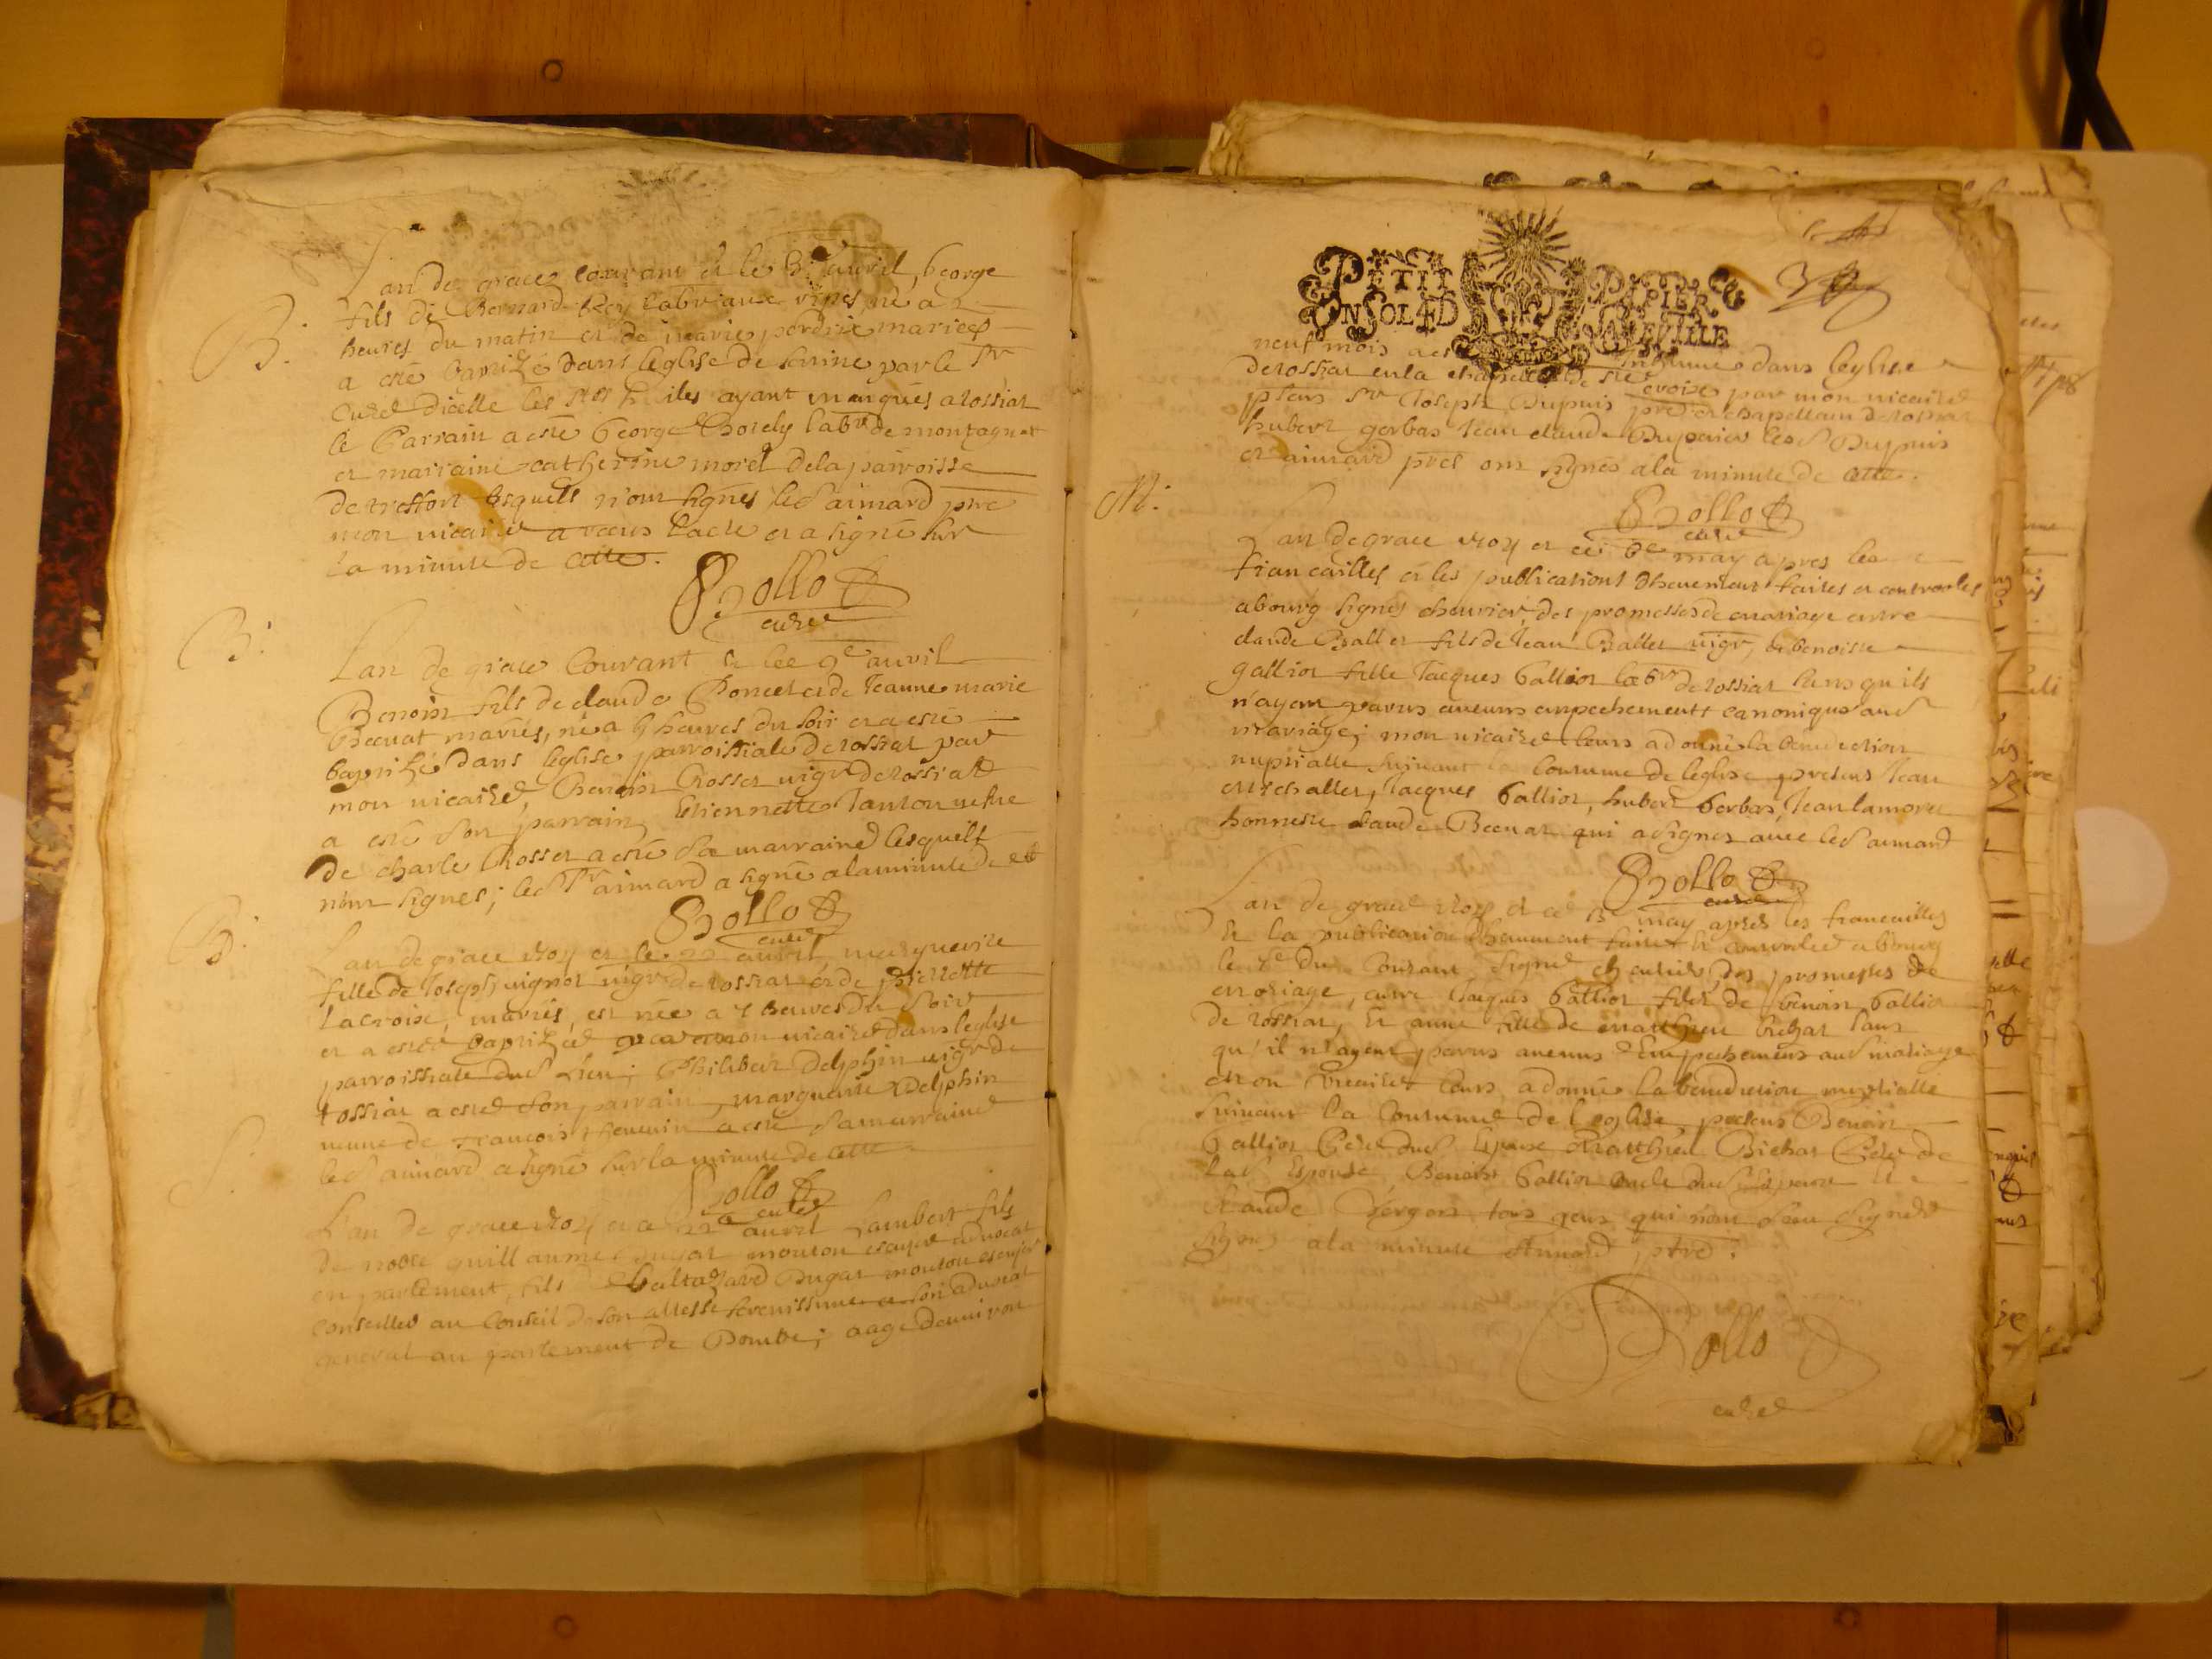 B.
Lan de grace courant et le 3e auvril, George
fils de Bernard Rey labr aue vipes, né a 2
heures du matin et de marie perdrix mariees
a esté baptizé dans leglise de serine par le Sr
Curé dicelle les Stes h iles ayant manqués a rossiat
le Parrain a esté George Borely labr de montagnat
et marraine catherine morel dela parroisse
de treffort lesquels n'ont signes led aimard pre
mon vicaire a receus lacte et a signé sur
la minute de cette.
Bollo
curé
B.
Lan de grace Courant & lee 9e auvril
Benoist fils de claude Poncet et de Jeanne marie
Becuat mariés, né a 9 heures du soir et a esté
baptizé dans leglise parroissiale de rossiat par
mon vicaire, Benoist Rosset vigr de rossiatt
a esté son parrain, Etiennette Tanton vefue
de charle Rosset a esté sa marraine lesquells
n'ont signes; led Sr aimard a signé ala minute de ctt
Bollo
curé
B.
Lan de grace et le 22 auvril marguerite
fille de Joseph vignot vigr de rossiat et de pierrette
Lacroix, mariés, est née a 7 heures du Soir
et a esté baptized par mon vicaire dans leglise
parroissiale dud Lieu; Philibert Delphin vigr de
rossiat a esté son parrain, marguerite Delphin
veuue de francois theuenin a esté sa marraine
led aimard a signé sur la minute de cette
Bollo
curé
S.
L'an de grace et a 22e auvril Lambert fils
de noble guillaume Dugat mouton escuyer aduocat
en parlement, fils de baltazard Dugat mouton escuyer
conseiller au Conseil de son altesse serenissime et son aduocat
general au parlement de Dombe; aage denuiron
PETIT PAPIER
UN SOL 4 D LA FEVILLE
neuf mois a esté Inhumé dans leglise
de rossiat en la chapelle de ste croix par mon vicaire
presens Sr Joseph Dupuis pre chapellain de rossiat
hubert gerbas Jean claude Dupuis les d Dupuis
et aimard pres ont signés ala minute de cette.
Bollo
curé
M.
Lan de grace et ce 6e may apres les
fiancailles et les publications dheuement faites et controolés
abourg signés cheurier, des promesses de mariage entre
claude Ballet fils de Jean Ballet vigr, et benoiste
galliot fille Jacques Galliot labr de rossiat sans qu ils
n'ayent parus aucuns empechements canoniques aud
mariage; mon vicaire leurs a donné la benediction
nuptialle suiuant la Coutume de leglise presens Jean
Jacques Galliot, hubert Gerbas, Jean lamore
honneste claude Becuat qui a signes auec led aimard
Bollo
curé
Lan de grace et ce 13 may apres les fiancailles
& la publication dheuement faite & controlee a bourg
le 7e du Courant Signé cheurier, des promesses de
mariage, entre Jacques Galliot fils de benoist Galliot
de rossiat, & anne fille de matthieu bichat sans
qu'il n'ayent parus aucuns Empechemens aud mariage
mon vicaire leurs a donné la benediction nuptialle
Suiuant la Coutume de leglise, presens Benoist
Galliot Pere dud Epoux Matthieu Bichat Pere de
lad Epouse, Benoist Galliot oncle dud Epoux &
Claude Hergon tous gens qui n'ont sceu signer
Signes ala minute Aimard ptre.
Bollo
curé